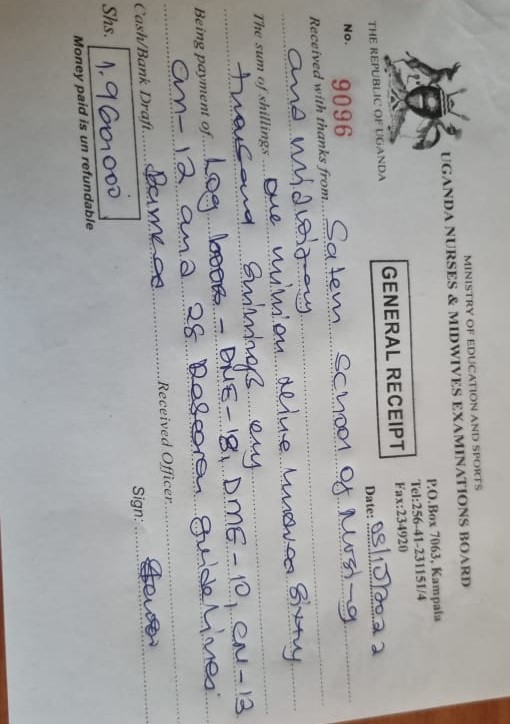 MINISTRY OF EDUCATION AND SPORTS
UGANDA NURSES & MIDWIVES EXAMINATIONS BOARD
THE REPUBLIC OF UGANDA
P.O.Box 7063, Kampala
Tel:256-41-231151/4
Fax:234920
GENERAL RECEIPT
No. 9096
Date: 05/10/2022
Received with thanks from Salem School of Nursing
and midwifery
The sum of shillings one million nine hundred sixty
thousand shillings only
Being payment of Log books - DNE-18, DME-10, CN-12
CM-12 and 28 Research guidelines.
Cash/Bank Draft Received Officer
Shs. 1,960,000 Sign:
Money paid is un refundable